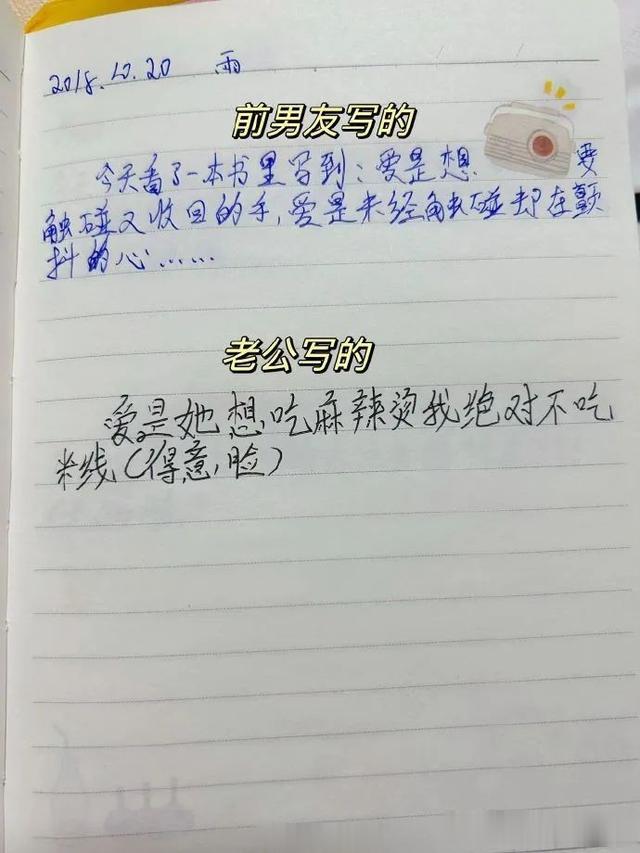 2018.10.20 雨
前男友写的
今天看了一本书里写到：爱是想要
触碰又收回的手，爱是未经触碰却在颤
抖的心……
老公写的
爱是她想吃麻辣烫我绝对不吃
米线（得意脸）